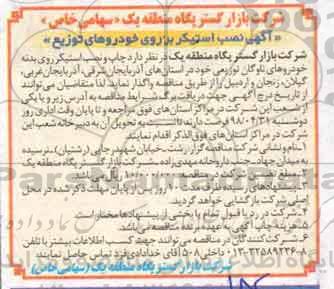 شرکت بازار گستر پگاه منطقه یک «سهامی خاص»
«آگهی نصب استیکر بر روی خودروهای توزیع»
شرکت بازار گستر پگاه منطقه یک در نظر دارد چاپ و نصب استیکر روی بدنه
خودروهای ناوگان توزیعی خود در استان‌های آذربایجان شرقی، آذربایجان غربی،
گیلان، زنجان و اردبیل را از طریق مناقصه واگذار نماید. لذا متقاضیان می‌توانند
از تاریخ درج آگهی جهت دریافت برگ شرایط مناقصه به آدرس زیر و یا یکی
از شعب این شرکت در مراکز استان‌های فوق مراجعه و تا پایان وقت اداری روز
دوشنبه ۹۸/۰۴/۳۱ فرصت دارند نسبت به تحویل آن به دبیرخانه شعب این
شرکت در مرکز استان‌های فوق‌الذکر اقدام نمایند.
۱ـ نام و نشانی شرکت مناقصه گزار: رشت ـ خیابان شهید رجایی (رشتیان) ـ نرسیده
به میدان جهاد ـ جنب داروخانه مهدی‌زاده ـ شرکت بازار گستر پگاه منطقه یک
۲ـ مبلغ تضمین شرکت در مناقصه ریال
۳ـ پیشنهادهای رسیده ظرف مدت ۹۰ روز پس از پایان مهلت ذکر شده در محل
اصلی شرکت بازگشایی خواهد گردید.
۴ـ شرکت در رد یا قبول تمام یا بخشی از پیشنهادها مختار است.
۵ـ هزینه چاپ آگهی به عهده برنده مناقصه می‌باشد.
۶ـ شرکت‌کنندگان در مناقصه می‌توانند جهت کسب اطلاعات بیشتر با تلفن
۰۱۳-۳۲۵۸۹۲۳۶-۸ داخلی ۵۰۸ آقای خدادادی‌فرد تماس حاصل نمایند.
شرکت بازار گستر پگاه منطقه یک (سهامی خاص)